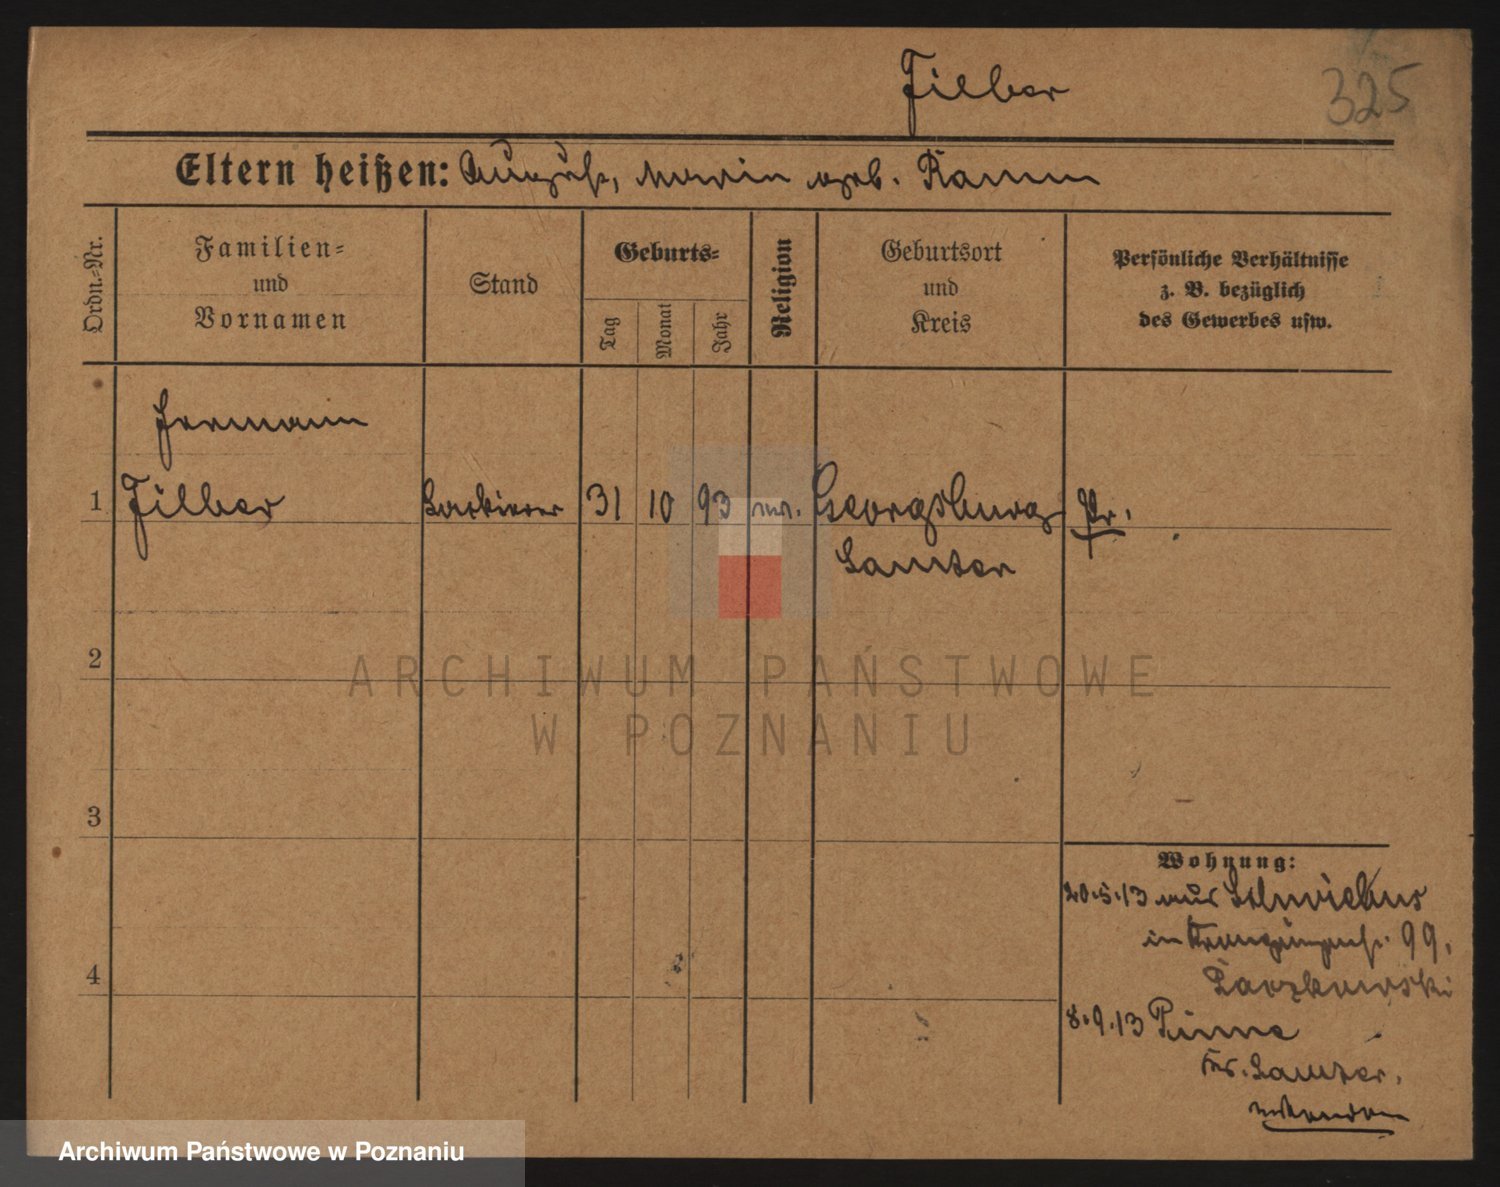 Filber
325
Eltern heißen: August, Maria geb. Ramm
Ordn.=Nr.
Familien=
und
Vornamen
Stand
Geburts=
Tag
Monat
Jahr
Religion
Geburtsort
und
Kreis
Persönliche Verhältnisse
z. B. bezüglich
des Gewerbes usw.
Hermann
1 Filber Lackierer 31 10 93 ev. Georgsburg Pr.
Samter
2
ARCHIWUM PAŃSTWOWE
W POZNANIU
3
Wohnung:
20.5.13 aus Schwiebus
in 99,
4
8.9.13 Pinne
Kr. Samter.
Archiwum Państwowe w Poznaniu